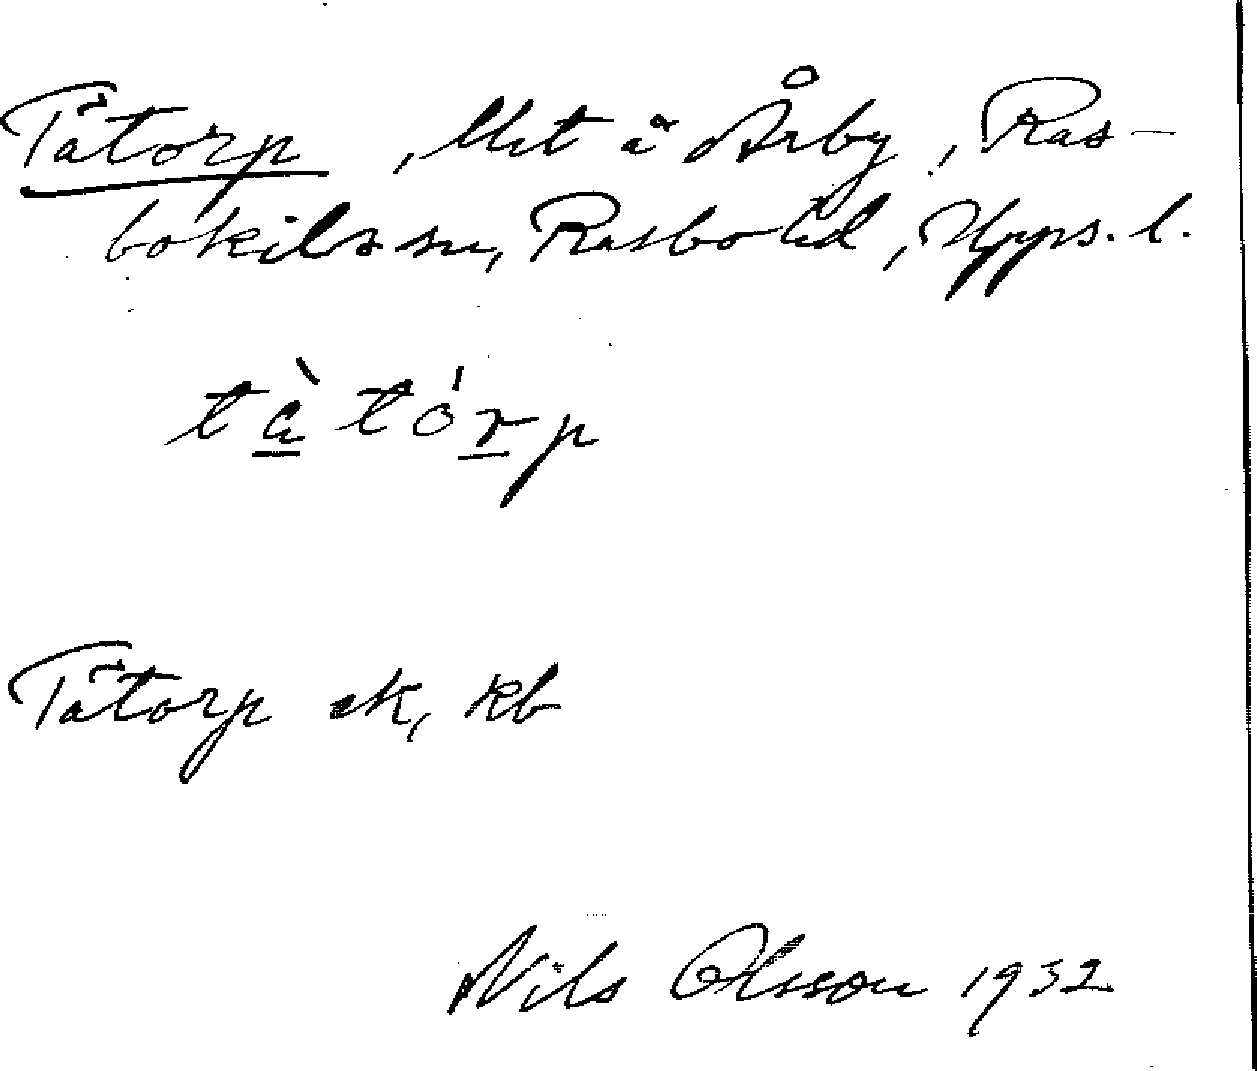 Tåtorp, lht å Årby, Ras-
bokils sn, Rasbo hd, Upps. l.
tàtórp
Tåtorp ek, kb
Nils Olsson 1932